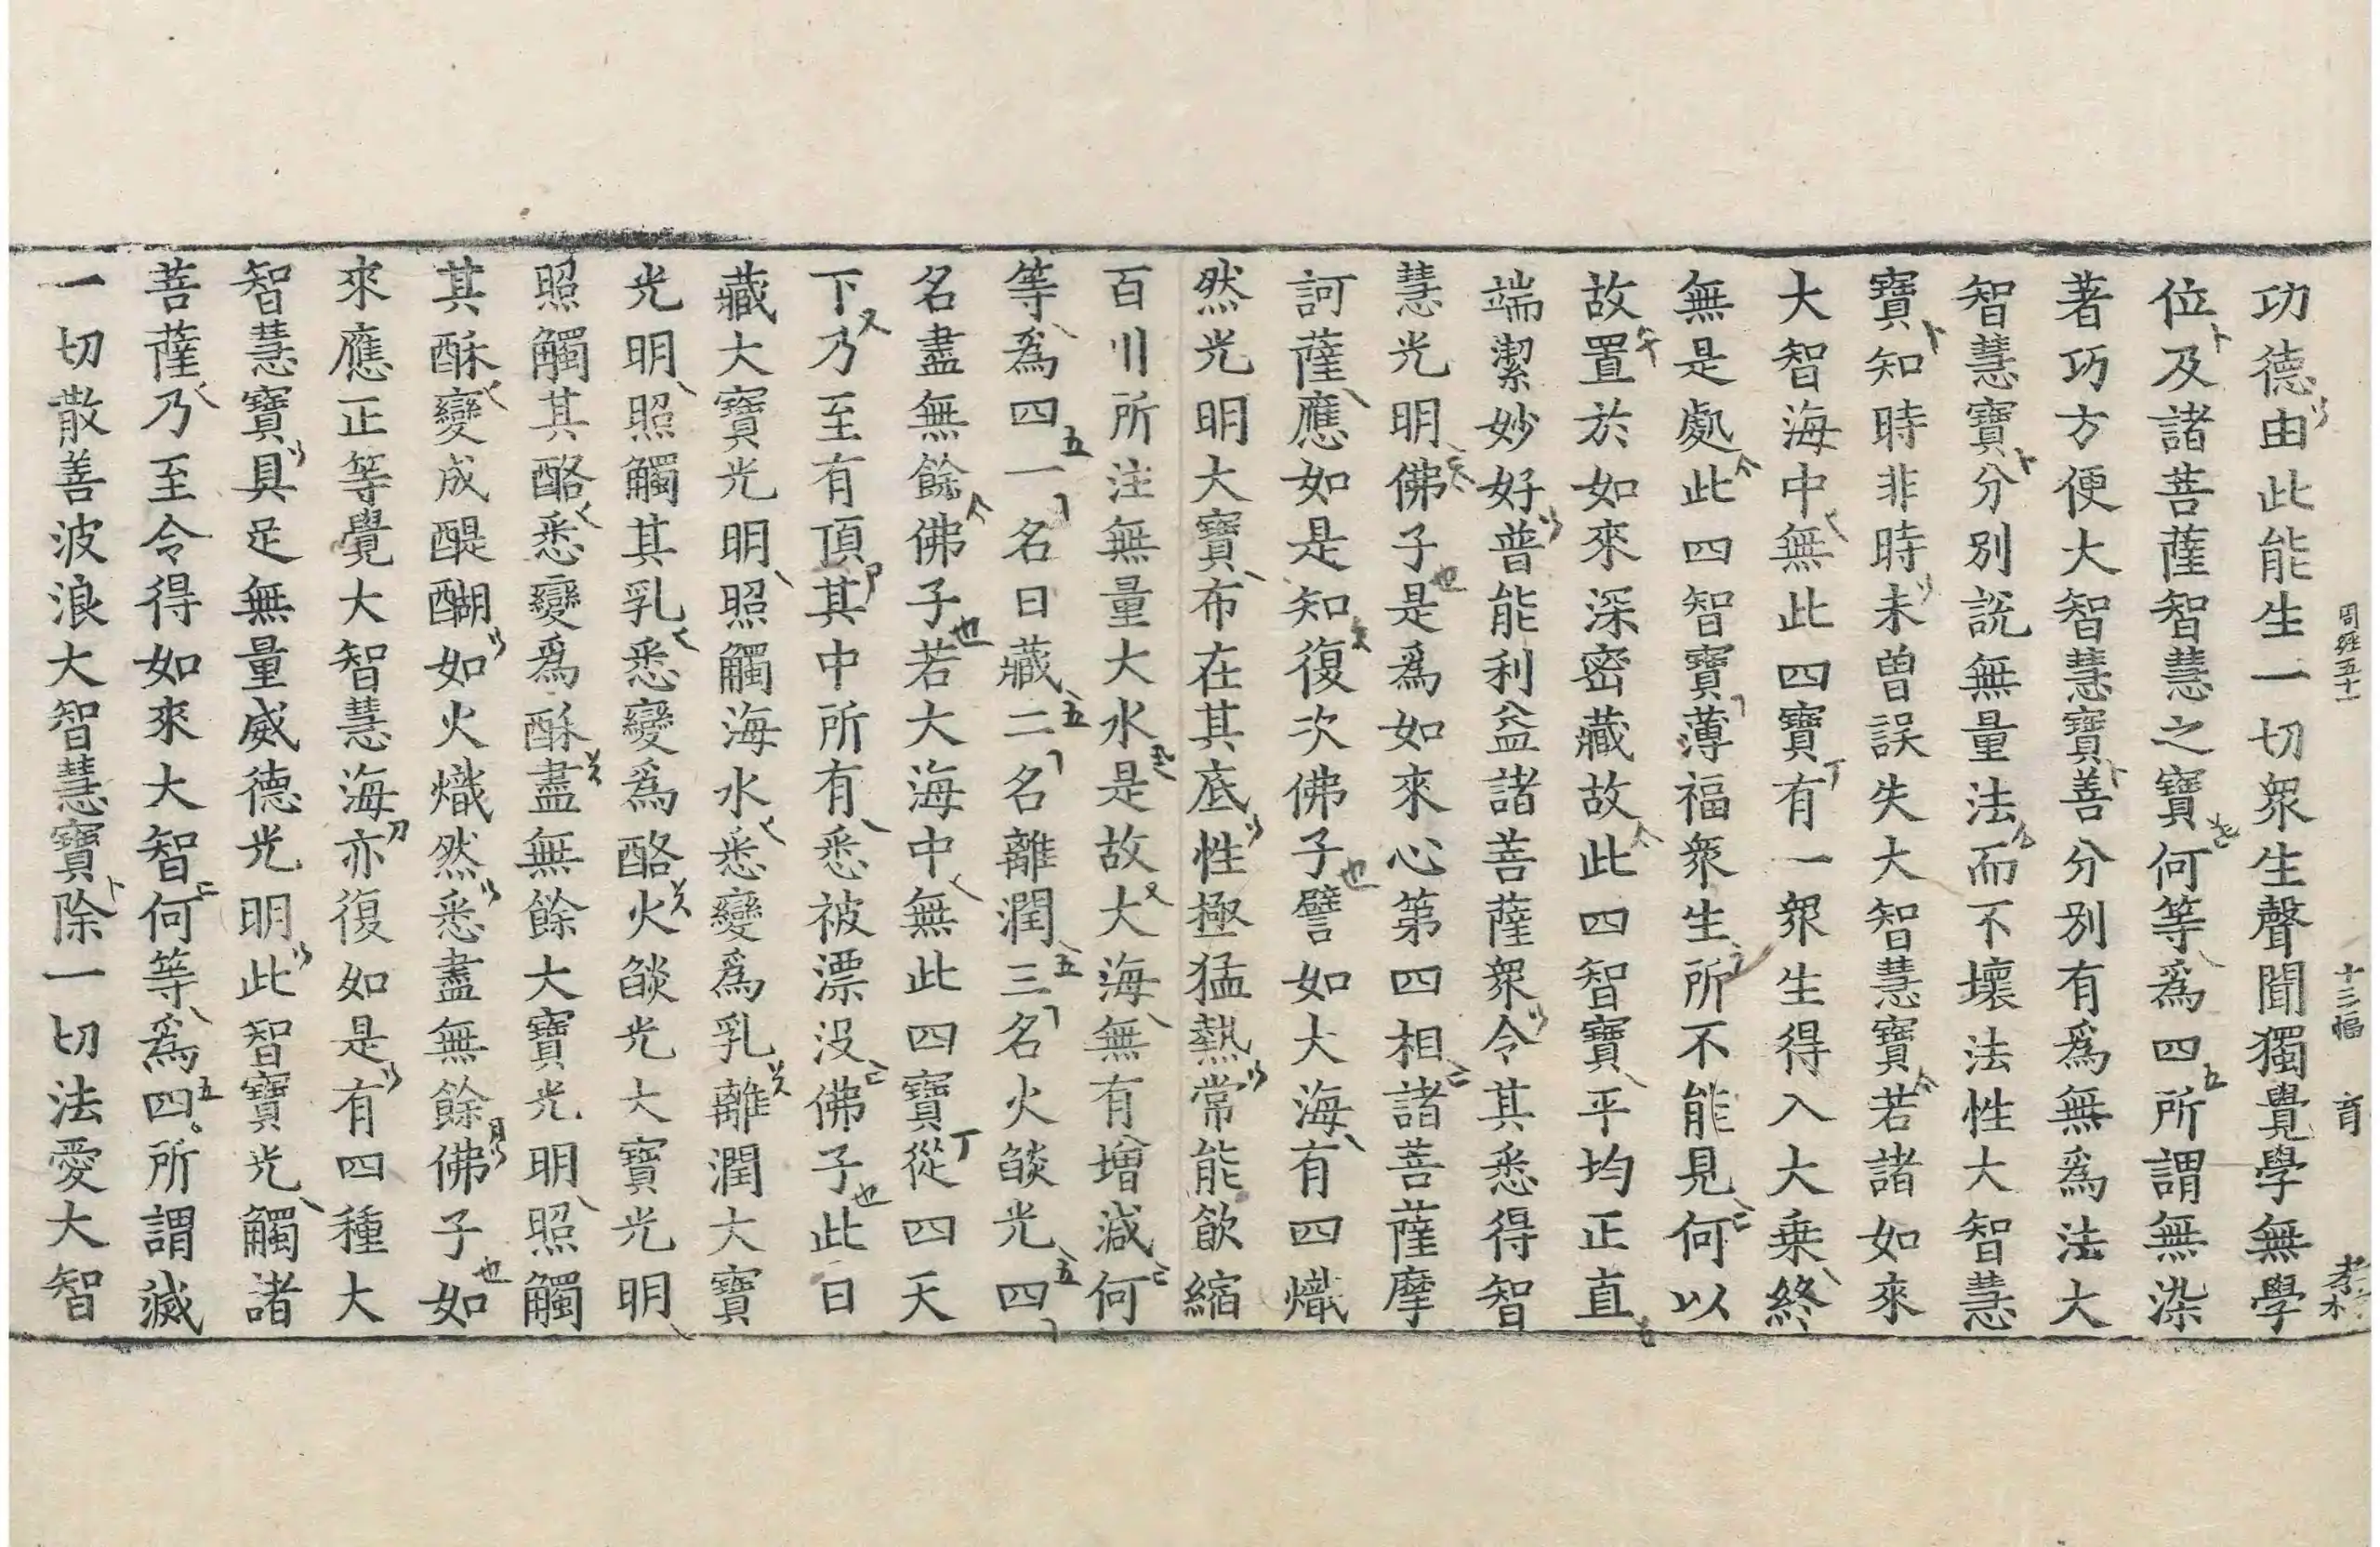 周經五十一 十三幅 育 孝才
功德由此能生一切衆生聲聞獨覺學無學
位及諸菩薩智慧之寶何等爲四所謂無染
著巧方便大智慧寶善分別有爲無爲法大
智慧寶分別說無量法而不壞法性大智慧
寶知時非時未曾誤失大智慧寶若諸如來
大智海中無此四寶有一衆生得入大乗終
無是處此四智寶薄福衆生所不能見何以
故置於如來深密藏故此四智寶平均正直
端潔妙好普能利益諸菩薩衆令其悉得智
慧光明佛子是爲如來心第四相諸菩薩摩
訶薩應如是知復次佛子譬如大海有四熾
然光明大寶布在其底性極猛熱常能飲縮
百川所注無量大水是故大海無有增減何
等爲四一名日藏二名離潤三名火燄光四
名盡無餘佛子若大海中無此四寶從四天
下乃至有頂其中所有悉被漂没佛子此日
藏大寶光明照觸海水悉變爲乳離潤大寶
光明照觸其乳悉變爲酪火燄光大寶光明
照觸其酪悉變爲酥盡無餘大寶光明照觸
其酥變成醍醐如火熾然悉盡無餘佛子如
來應正等覺大智慧海亦復如是有四種大
智慧寶具足無量威德光明此智寶光觸諸
菩薩乃至令得如來大智何等爲四所謂滅
一切散善波浪大智慧寶除一切法愛大智